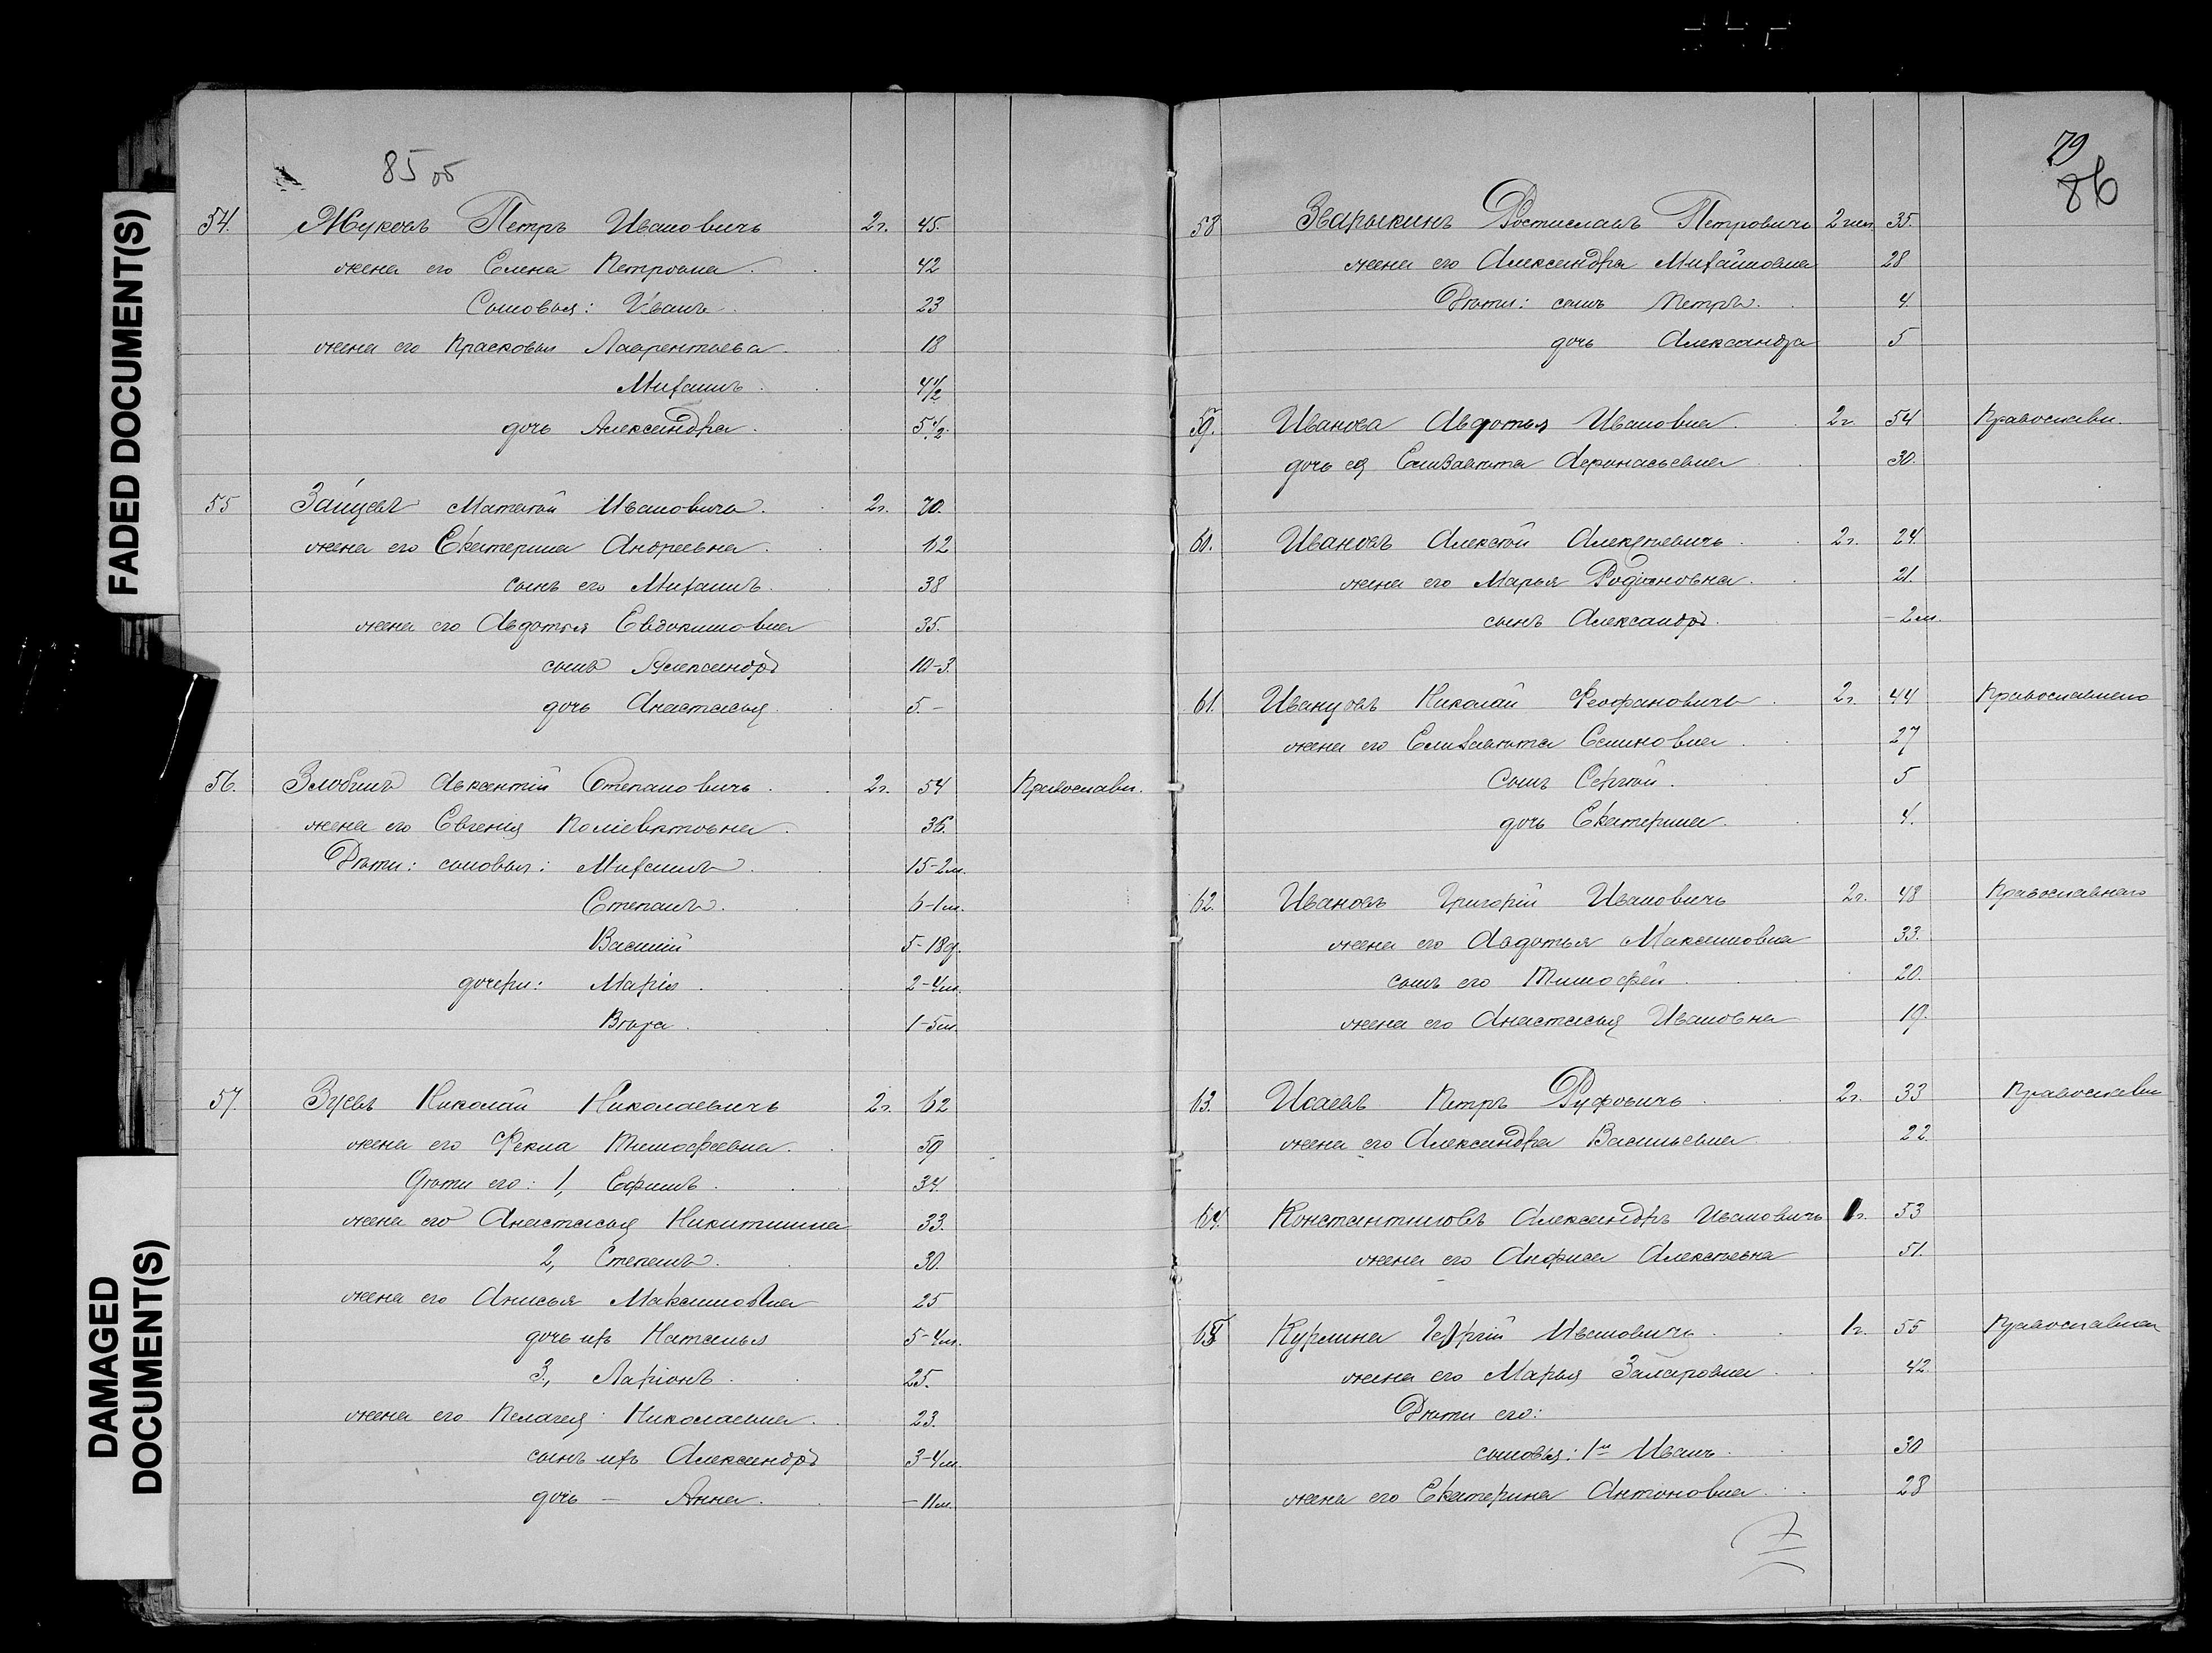 85 об
54. Жуковъ Петръ Ивановичъ 2г. 45.
жена его Елена Петровна. 42
Сыновья: Иванъ. 23
жена его Прасковья Лаврентьева. 18
Михаилъ. 4 1/2
дочь Александра. 5 1/2
55 Зайцевъ Матвѣй Ивановичъ. 2г. 70.
жена его Екатерина Андреевна. 62
сынъ его Михаилъ. 38
жена его Авдотья Евдокимовна 35.
сынъ Александръ 10-3.
дочь Анастасья. 5.-
56. Злобинъ Авксентій Степановичъ. 2г. 54 Православн.
жена его Евгенія Поліевктовна. 36.
Дѣти: сыновья: Михаилъ. 15-2м.
Степанъ. 6-1м.
Василій 5-18д.
дочери: Марія. 2-4м.
Вѣра. 1-5м.
57. Зуевъ Николай Николаевичъ 2г. 62
жена его Фекла Тимофеевна. 59
Дѣти его: 1, Ефимъ. 34.
жена его Анастасья Никитишна 33.
2, Степанъ. 30.
жена его Анисья Максимовна 25
дочь ихъ Наталья 5-4м.
3, Ларіонъ. 25.
жена его Пелагея Николаевна. 23.
сынъ ихъ Александръ 3-4м.
дочь — Анна. -11м.
79
86
58 Зварыкинъ Ростиславъ Петровичъ 2 гил. 35.
жена его Александра Михайловна 28
Дѣти: сынъ Петръ. 4.
дочь Александра 5
59. Иванова Авдотья Ивановна. 2г. 54 Православн.
дочь ея Елизавѣта Афонасьевна 30.
60. Ивановъ Алексѣй Алексѣевичъ. 2г. 24.
жена его Марья Родіоновна. 21.
сынъ Александръ. -2м.
61. Иванцовъ Николай Феофановичъ. 2г. 44 Православнаго
жена его Елизавѣта Семиновна. 27
Сынъ Сергѣй. 5
дочь Екатерина. 4.
62. Ивановъ Григорій Ивановичъ 2г. 48 Православнаго
жена его Авдотья Максимовна 33.
сынъ его Тимофей. 20.
жена его Анастасья Ивановна 19.
63. Исаевъ Петръ Руфовичъ. 2г. 33 Православн
жена его Александра Васильевна 22.
64. Константиновъ Александръ Ивановичъ 1г. 53
жена его Анфиса Алексѣевна 51.
65 Курлина Георгій Ивановичъ. 1г. 55 Православная
жена его Марья Захаровна. 42.
Дѣти его:
сыновья: 1й Иванъ. 30
жена его Екатерина Антоновна. 28
FADED DOCUMENT(S)
DAMAGED
DOCUMENT(S)